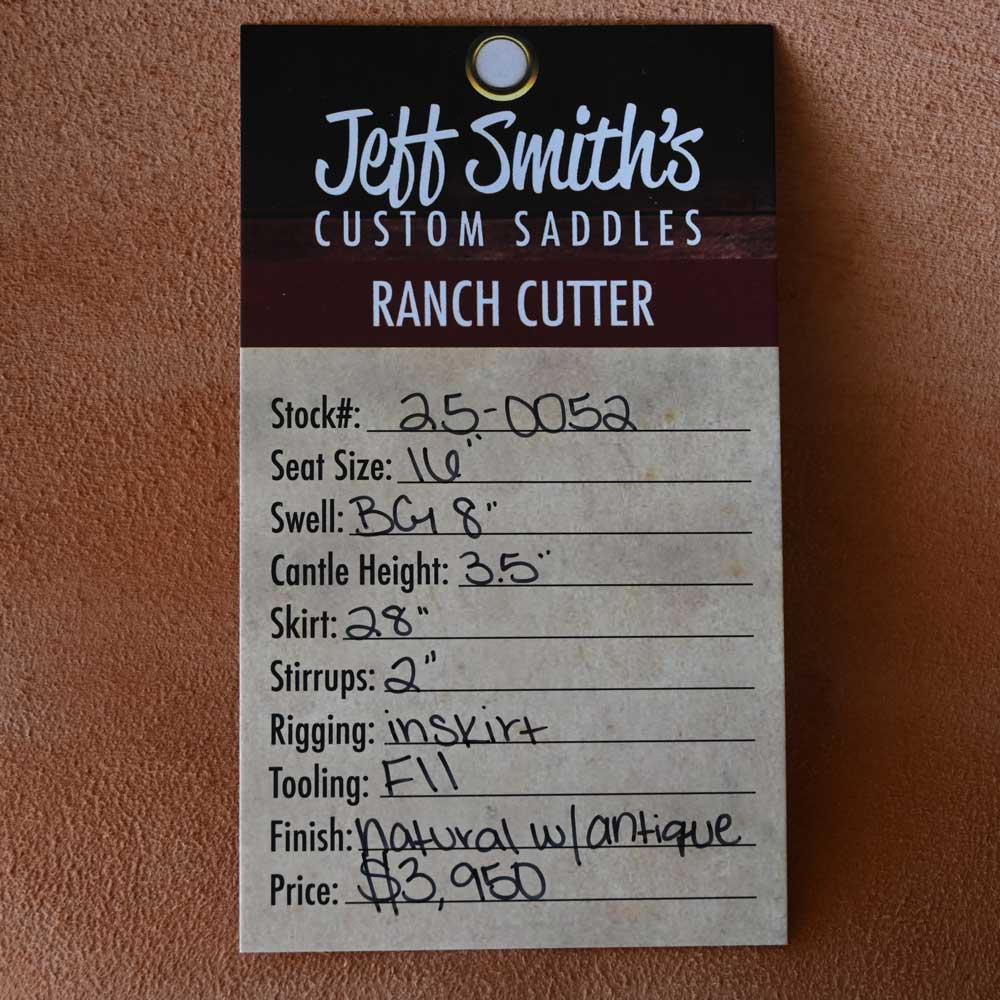 Jeff Smith's
CUSTOM SADDLES
RANCH CUTTER
Stock#: 25-0052
Seat Size: 16"
Swell: BG 8"
Cantle Height: 3.5"
Skirt: 28"
Stirrups: 2"
Rigging: inskirt
Tooling: F11
Finish: natural w/antique
Price: $3,950